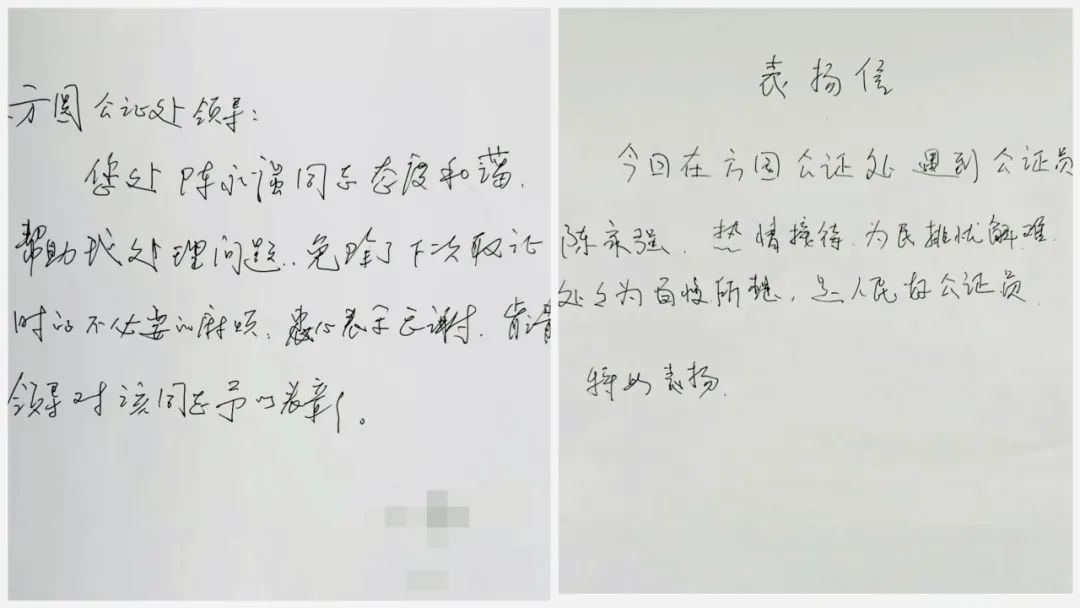 方圆公证处领导:
您处陈永强同志态度和蔼.
帮助我处理问题.免除了下次取证
时的不必要的麻烦.衷心表示感谢.肯请
领导对该同志予以表彰。
表扬信
今回在方圆公证处遇到公证员
陈永强.热情接待.为民排忧解难.
处处为百姓所想,是人民好公证员.
特此表扬.